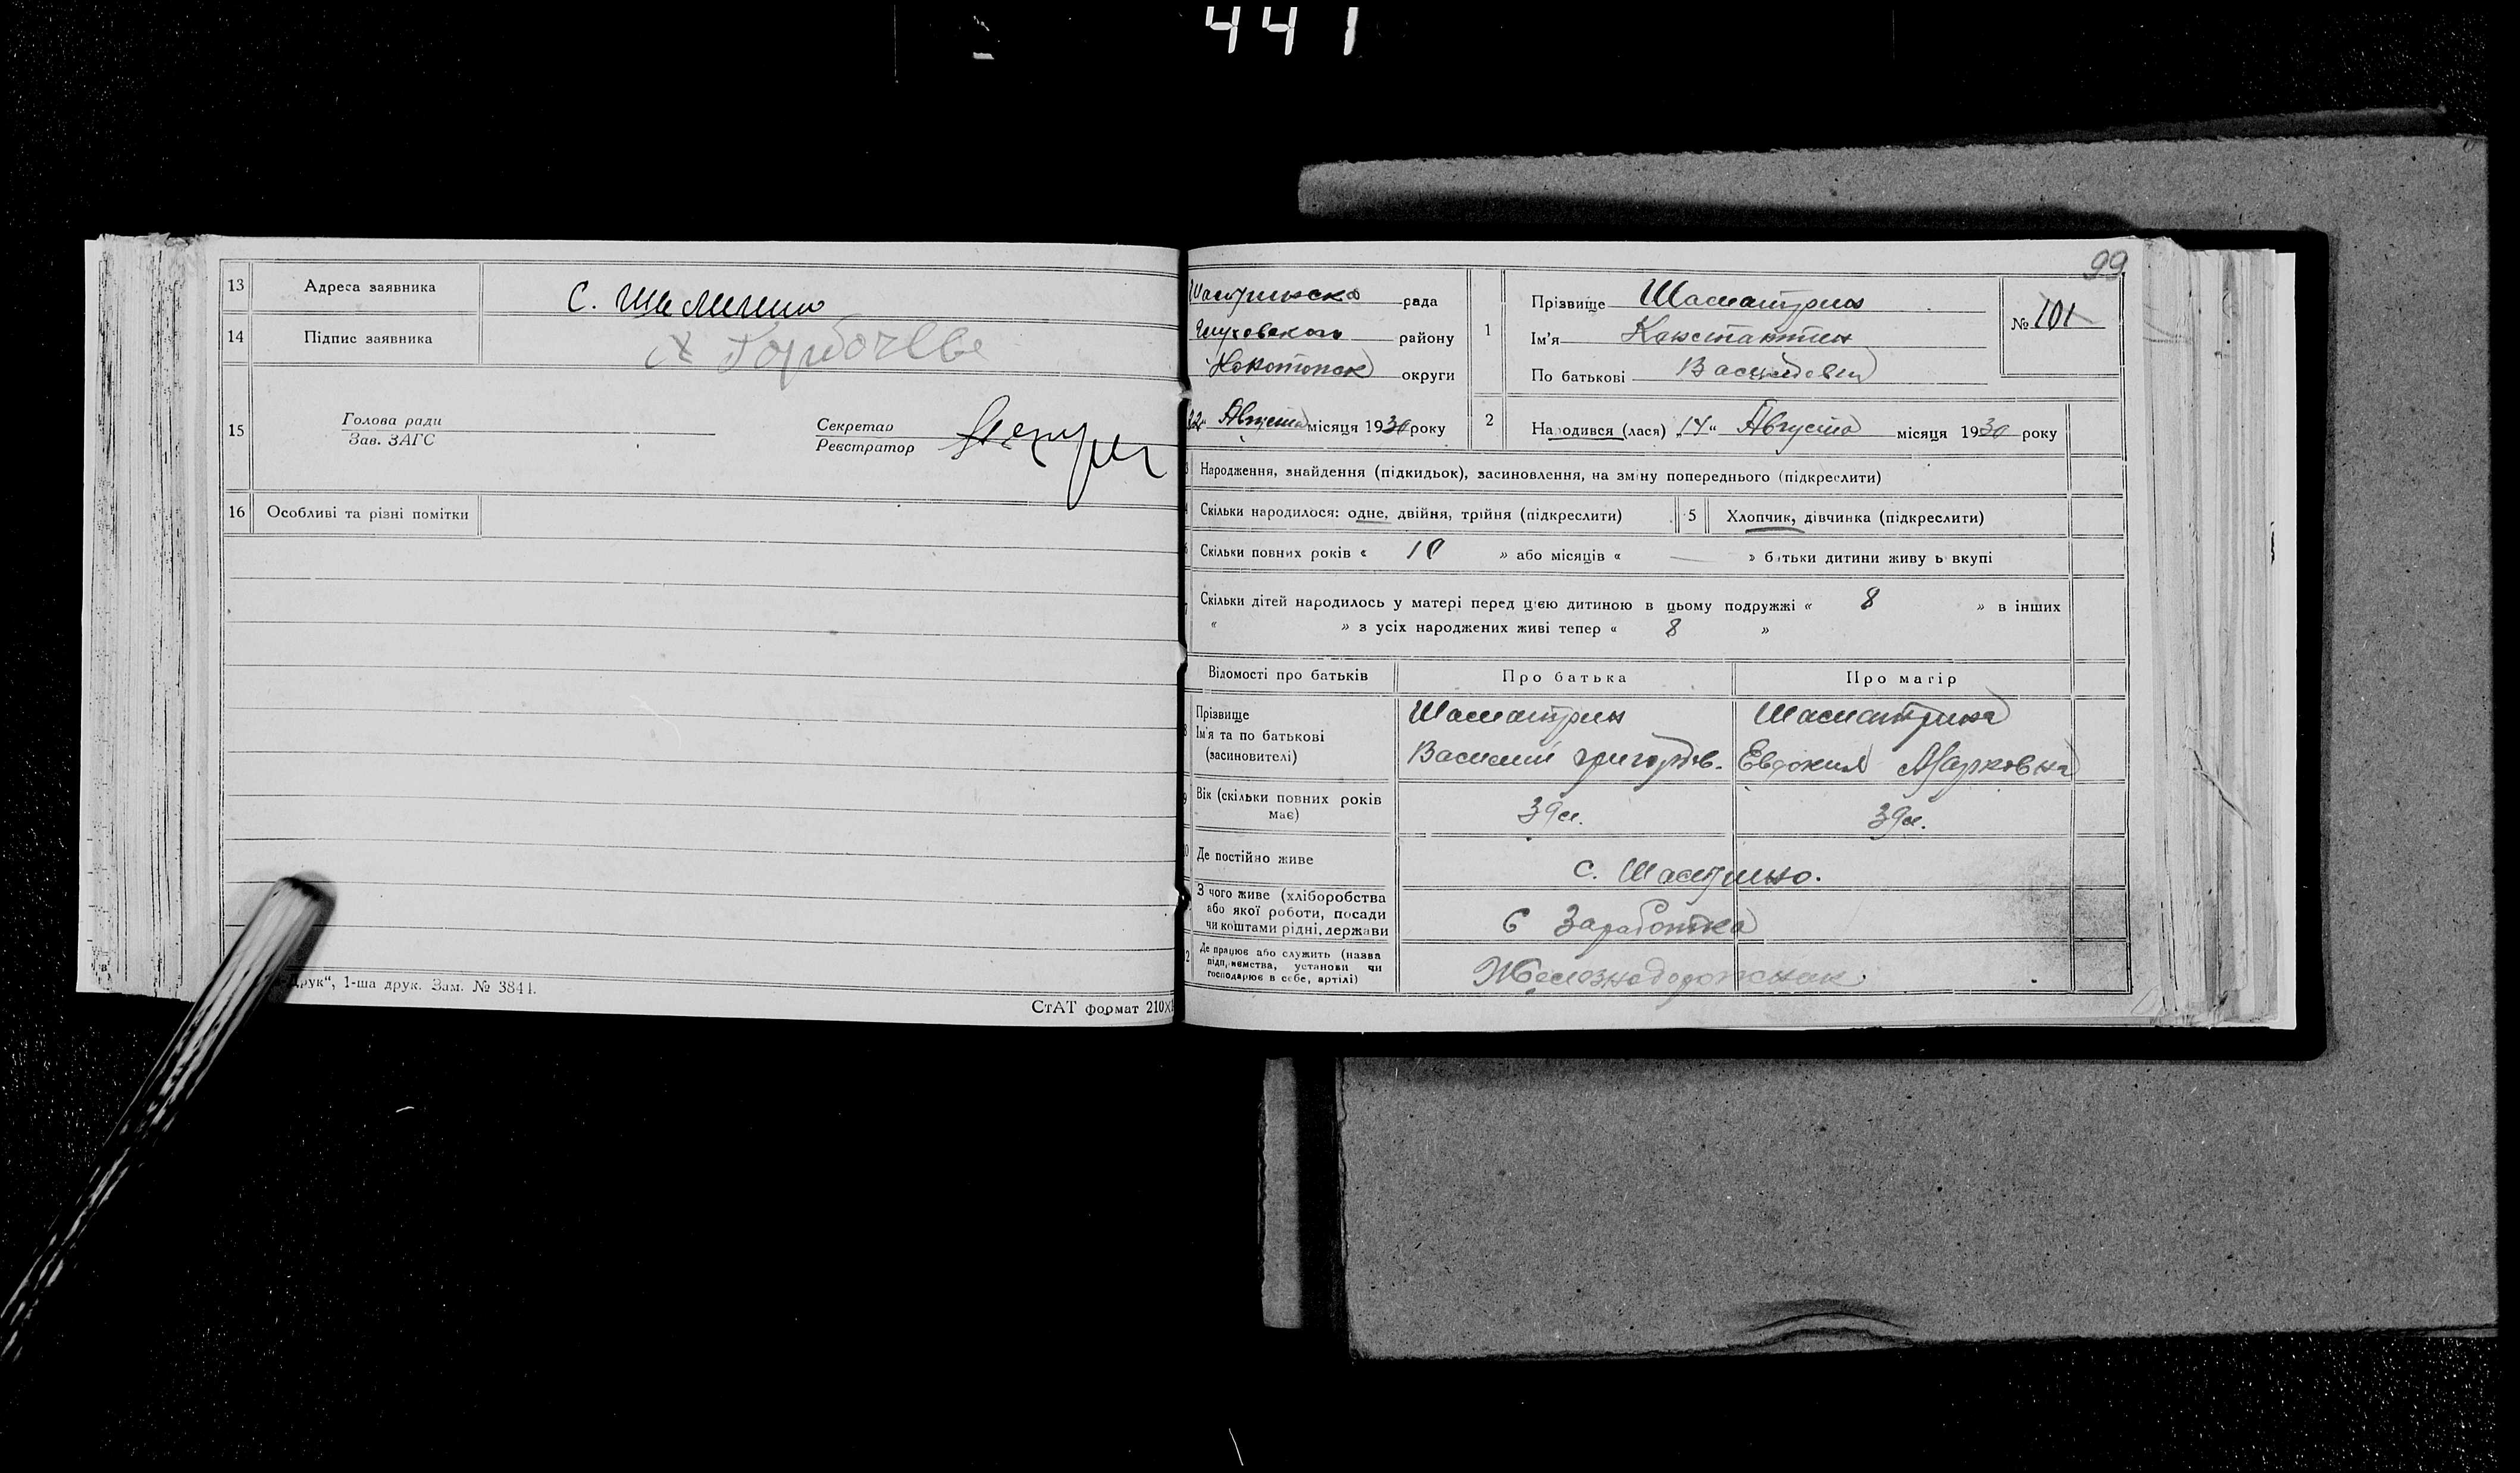 441
13 Адреса заявника С. Шалигино
14 Підпис заявника
15 Голова ради
Зав. ЗАГС
Секретар
Реєстратор
16 Особливі та різні помітки
Друк“, 1-ша друк. Зам. № 3841.
СтАТ формат 210X
99
рада
Глуховского району
Конотопск округи
22 „ Августа місяця 1930 року
1 Прізвище Шаматрин
Ім'я Константин
По батькові Васильевич
№ 101
2 Народився (лася) „14“ Августа місяця 1930 року
3 Народження, знайдення (підкидьок), засиновлення, на зміну попереднього (підкреслити)
4 Скільки народилося: одне, двійня, трійня (підкреслити) 5 Хлопчик, дівчинка (підкреслити)
6 Скільки повних років « 10 » або місяців « — » батьки дитини живуть вкупі
7 Скільки дітей народилось у матері перед цією дитиною в цьому подружжі « 8 » в інших
« » з усіх народжених живі тепер « 8 »
Відомості про батьків Про батька Про матір
8 Прізвище Шаматрин Шаматрина
Ім'я та по батькові
(засиновителі) Василий Григоров. Евдокия Марковна
9 Вік (скільки повних років
має) 39 л. 39 л.
10 Де постійно живе с.
З чого живе (хліборобства
або якої роботи, посади
чи коштами рідні, держави С Заработка
12 Де працює або служить (назва
підприємства, установи чи
господарює в себе, артілі) Железнодорожник